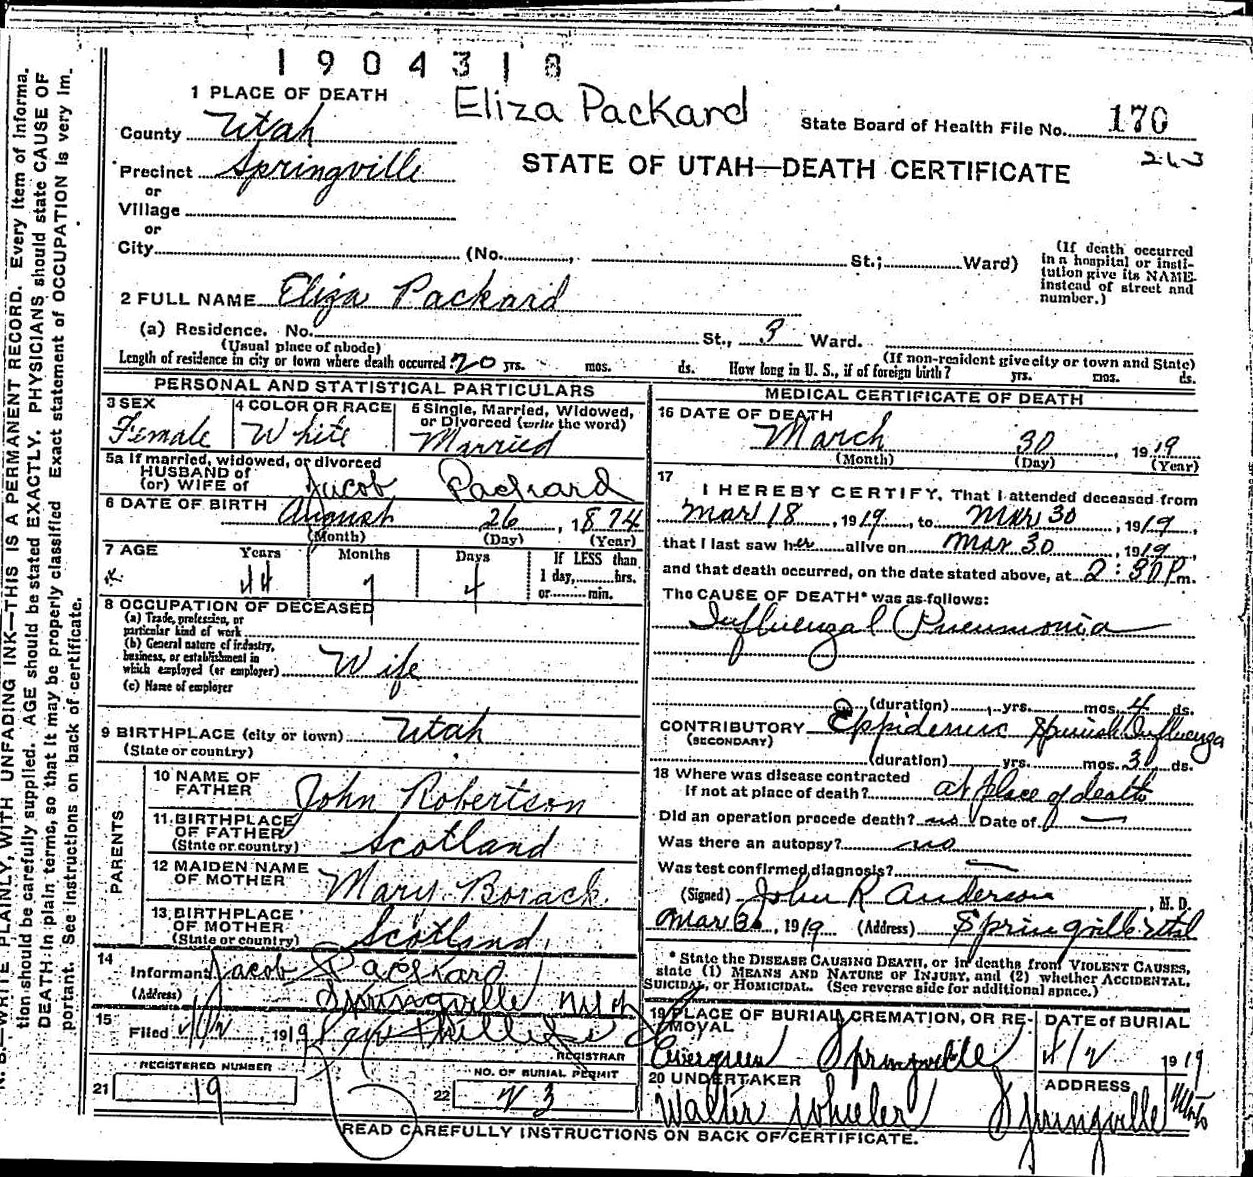 1904318
1 PLACE OF DEATH
Eliza Packard
County Utah
State Board of Health File No. 170
Precinct Springville
STATE OF UTAH—DEATH CERTIFICATE
243
or
Village
or
City (No. , St.; Ward)
(If death occurred
in a hospital or insti-
tution give its NAME
instead of street and
number.)
2 FULL NAME Eliza Packard
(a) Residence. No. St., 3 Ward.
(Usual place of abode) (If non-resident give city or town and State)
Length of residence in city or town where death occurred 20 yrs. mos. ds. How long in U. S., if of foreign birth? yrs. mos. ds.
PERSONAL AND STATISTICAL PARTICULARS
3 SEX
Female
4 COLOR OR RACE
White
5 Single, Married, Widowed,
or Divorced (write the word)
Married
5a If married, widowed, or divorced
HUSBAND of
(or) WIFE of Jacob Packard
6 DATE OF BIRTH August 26, 1874
(Month) (Day) (Year)
7 AGE Years Months Days If LESS than
1 day, hrs.
or min.
44 7 4
8 OCCUPATION OF DECEASED
(a) Trade, profession, or
particular kind of work
(b) General nature of industry,
business, or establishment in
which employed (or employer) Wife
(c) Name of employer
9 BIRTHPLACE (city or town) Utah
(State or country)
PARENTS
10 NAME OF
FATHER John Robertson
11 BIRTHPLACE
OF FATHER
(State or country) Scotland
12 MAIDEN NAME
OF MOTHER Mary
13 BIRTHPLACE
OF MOTHER
(State or country) Scotland
14
Informant Jacob Packard
(Address) Springville Utah
15
Filed 4/2, 1919
REGISTRAR
REGISTERED NUMBER
21 19
NO. OF BURIAL PERMIT
22 23
MEDICAL CERTIFICATE OF DEATH
16 DATE OF DEATH
March 30, 1919
(Month) (Day) (Year)
17
I HEREBY CERTIFY, That I attended deceased from
Mar 18, 1919, to Mar 30, 1919,
that I last saw her alive on Mar 30, 1919,
and that death occurred, on the date stated above, at 2:30 P m.
The CAUSE OF DEATH* was as follows:
Influenzal Pneumonia
(duration) yrs. mos. 4 ds.
CONTRIBUTORY Eppidemic Spanish Influenza
(SECONDARY)
(duration) yrs. mos. 30 ds.
18 Where was disease contracted
if not at place of death? at place of death
Did an operation precede death? no Date of —
Was there an autopsy? no
Was test confirmed diagnosis? —
(Signed) John R Anderson, M. D.
Mar 30, 1919 (Address) Springville Utah
* State the DISEASE CAUSING DEATH, or in deaths from VIOLENT CAUSES,
state (1) MEANS AND NATURE OF INJURY, and (2) whether ACCIDENTAL,
SUICIDAL, or HOMICIDAL. (See reverse side for additional space.)
19 PLACE OF BURIAL, CREMATION, OR RE-
MOVAL
Evergreen Springville
DATE of BURIAL
4/2 1919
20 UNDERTAKER
Walter Wheeler
ADDRESS
Springville Utah
READ CAREFULLY INSTRUCTIONS ON BACK OF CERTIFICATE.
N. B.—WRITE PLAINLY, WITH UNFADING INK—THIS IS A PERMANENT RECORD. Every item of informa-
tion should be carefully supplied. AGE should be stated EXACTLY. PHYSICIANS should state CAUSE OF
DEATH in plain terms, so that it may be properly classified Exact statement of OCCUPATION is very im-
portant. See instructions on back of certificate.